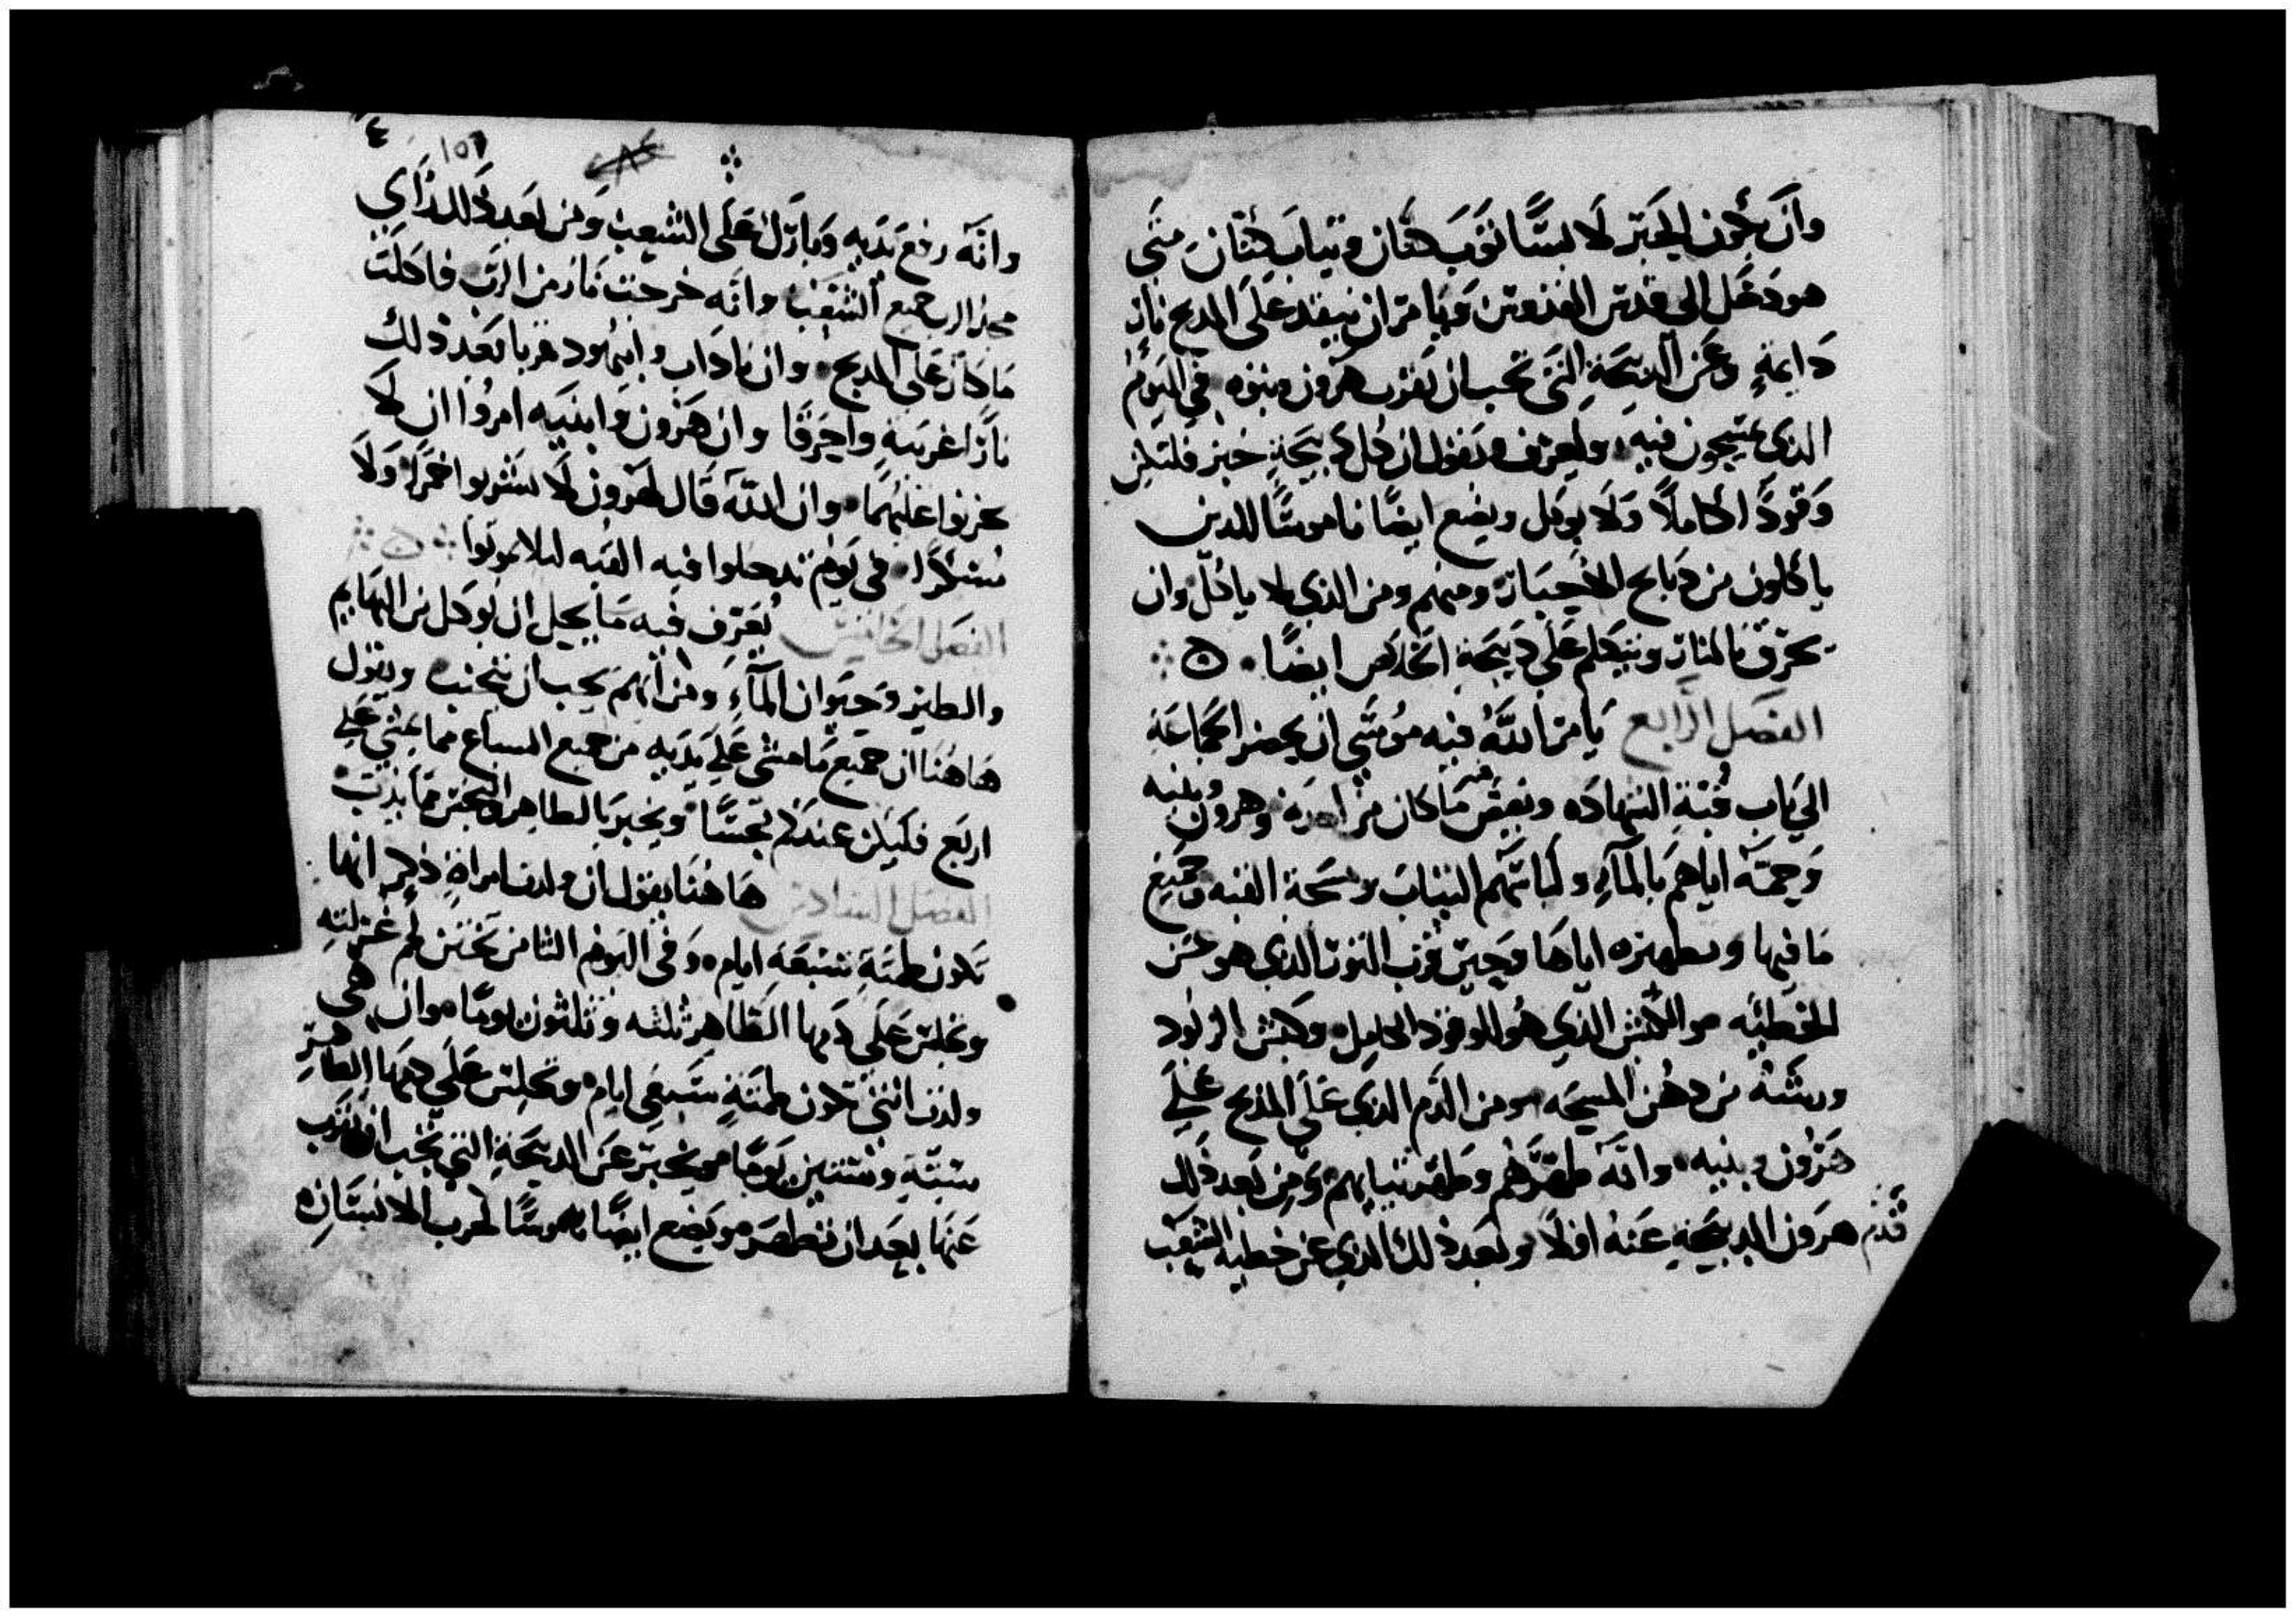 وان يكون الحبر لابسًا ثوب كتان وثياب كتان متى
هو دخل الى قدس القدوس ويامر ان يبقد على المدبح نار
دايمةٍ وعن الدبيحة التى تجب ان تقرب هرون وبنوه في اليوم
الذي يمسحون فيه وليعرف ويقول ان كل دبيحة خبز فلتكن
وقودًا كاملاً ولا يوكل ويضع ايضًا ناموسًا للدين
ياكلون من دبايح الاحبار ومنهم ومن الذي لا ياكل وان
يحرق بالنار ويتكلم على دبيحة الخلاص ايضًا
الفصل الرابع يامر الله فيه موسى ان يحضر الجماعة
الى باب قبة الشهاده وهرون وبنيه
وحمه اياهم بالمآء ولباسهم الثياب ومسحة القبه وجميع
ما فيها وتطهيره اياها وحين قرب الثور الذي هو عن
الخطيه والكبش الذي هو للوقود الكامل وكبش
ورشه من دهن المسيحه ومن الدم الذي على المذبح على
هرون وبنيه وانه طهرهم وطهر ثيابهم ومن بعد ذلك
قدم هرون الدبيحة عنه اولاً وبعد ذلك الذي عن خطية الشعب
١٥٦
وانه رفع يديه وبارك على الشعب ومن بعد ذلك راي
مجد الرب جميع الشعب وانه خرجت نار من الرب فاكلت
ما كان على المدبح وان ناداب وابيهود قربا بعد ذلك
نارًا غريبة واحترقا وان هرون وابنيه امروا ان لا
يحزنوا عليهما وان الله قال لهرون لا يشربوا خمرًا ولا
مسكرًا في يوم تدخلوا فيه القبه لئلا تموتوا
الفصل الخامس يعرف فيه ما يحل ان يوكل من البهايم
والطير وحيوان المآء ومن ايهم يجب ان يتجنب ويقول
هاهنا ان جميع ما مشى على يديه من جميع السباع مما يمشي على
اربع فليكن عندكم نجسًا ويخبر بالطاهر والنجس مما يدب
الفصل السادس هاهنا يقول ان ولدت امراة ذكر انها
تكون طمثة سبعة ايام وفي اليوم الثامن يختن لحم غرلته
وتجلس على دمها الطاهر ثلثه وثلثون يومًا وان هي
ولدت انثى تكون طمثة سبعي ايام وتجلس على دمها الطاهر
ستة وستين يومًا ويخبر عن الدبيحة التي تجب ان تقرب
عنها بعد ان تطهر ويضع ايضًا ناموسًا لجرب الانسان